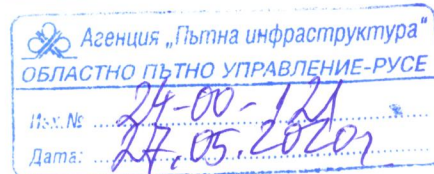 Агенция „Пътна инфраструктура"
ОБЛАСТНО ПЪТНО УПРАВЛЕНИЕ-РУСЕ
Изх. № 24-00-121
Дата: 27.05.2020г